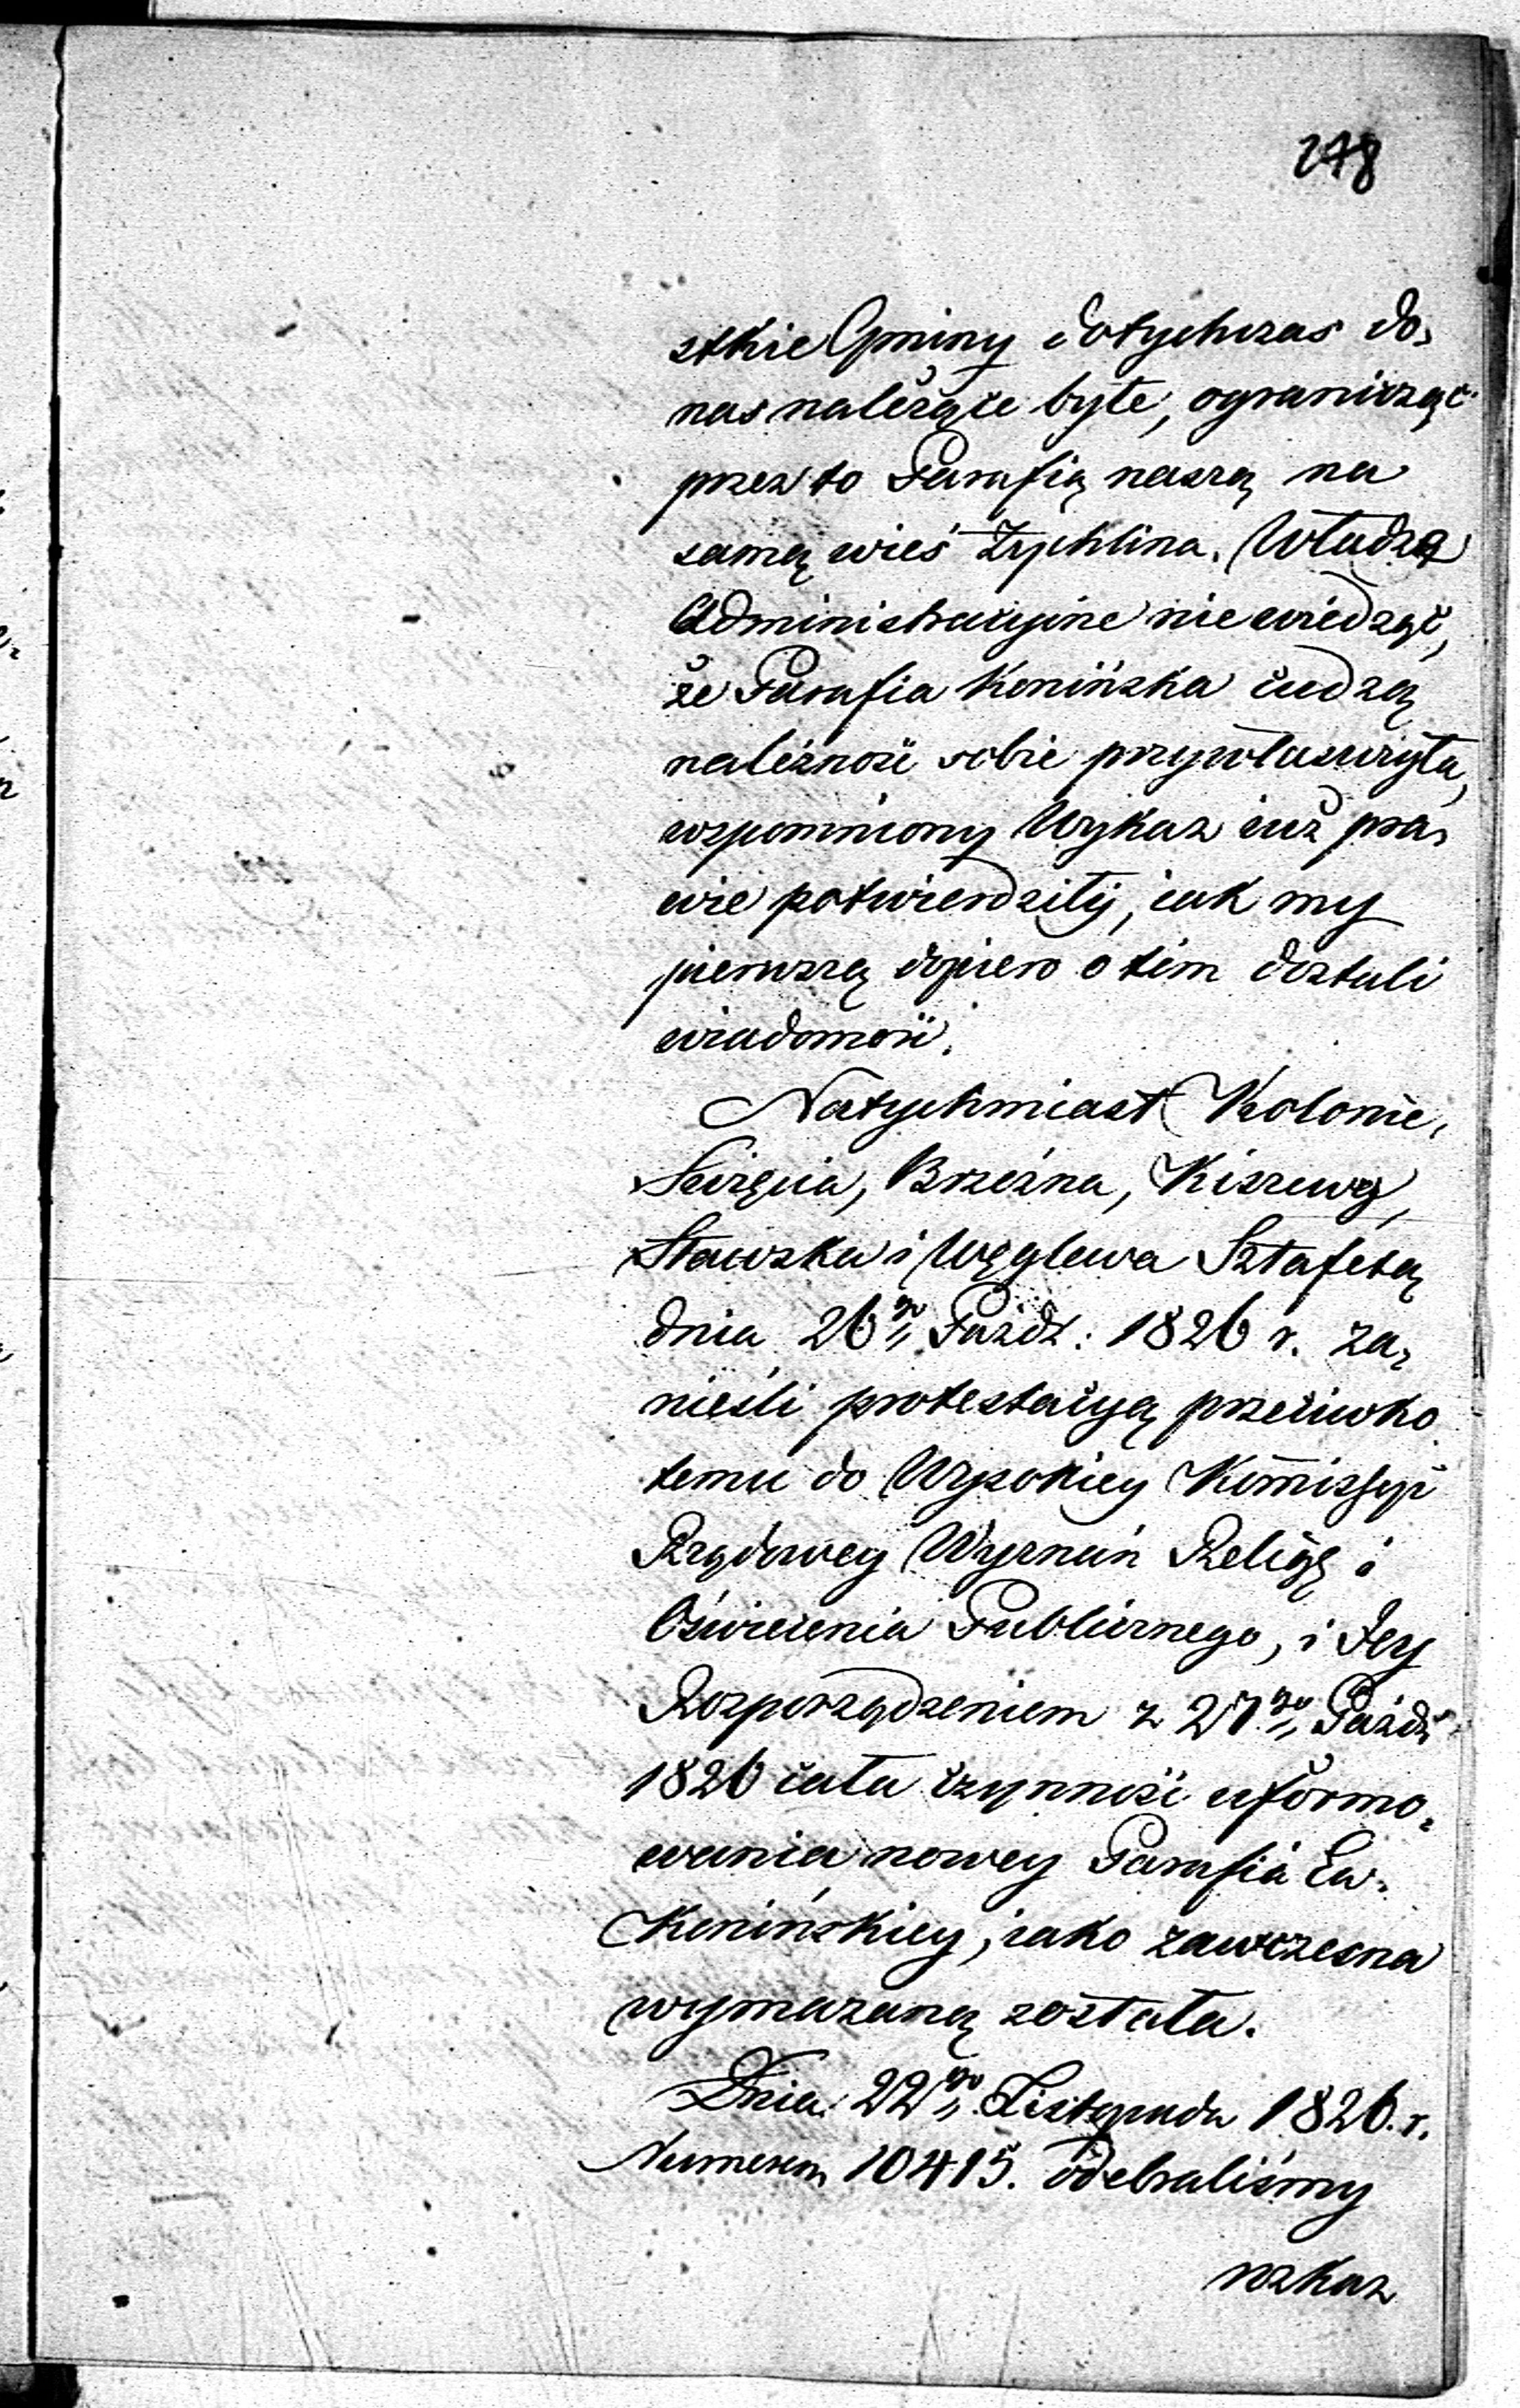 278
stkie Gminy dotychczas do,
nas należące byłe, ogranicząc
przez to Parafią naszą na
samą wieś Żychlina. Władze
Administracyine nie wiedząc,
że Parafia Konińska cudzą
należność sobie przywłaszczyła,
wspomniony Wykaz iuż pra,
wie potwierdziły, iak my
pierwszą dopiero o tém dostali
wiadomość.
Natychmiast Kolonie,
Święcia, Brzeźna, Kiszewy,
Stawska i Węglewa Sztafetą
dnia 26go Paźdz: 1826 r. za,
nieśli protestacyą przeciwko
temu do Wysokiey Kommissyi
Rządowey Wyznań Religy i
Oświecenia Publicznego, i Jey
Rozporządzeniem z 27go Paźdz
1826 cała czynność uformo,
wania nowey Parafii Ew.
Konińskiey, iako zawczesna
wymazaną została.
Dnia 22go Listopada 1826. r.
Numerem 10415. odebraliśmy
rozkaz